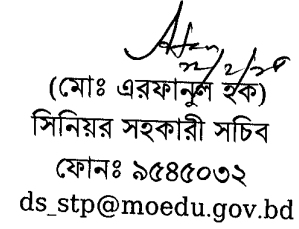 (মোঃ এরফানুল হক)
সিনিয়র সহকারী সচিব
ফোনঃ ৯৫৪৫০৩২
ds_stp@moedu.gov.bd